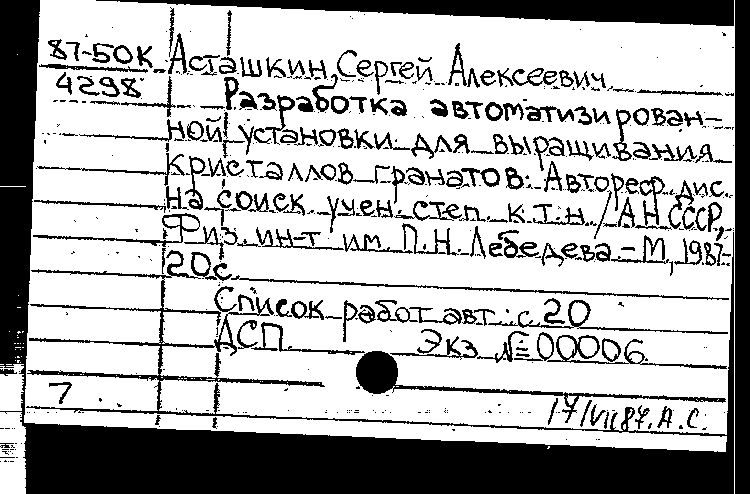 87-50К Асташкин, Сергей Алексеевич
4298 Разработка автоматизирован-
ной установки для выращивания
кристаллов гранатов: Автореф. дис.
на соиск. учен. степ. к.т.н. / АН СССР,
Физ. ин-т им. П.Н. Лебедева. – М., 1987.-
20с.
Список работ авт.: с. 20
ДСП. Экз. №00006.
7
17/VII87. А.С.